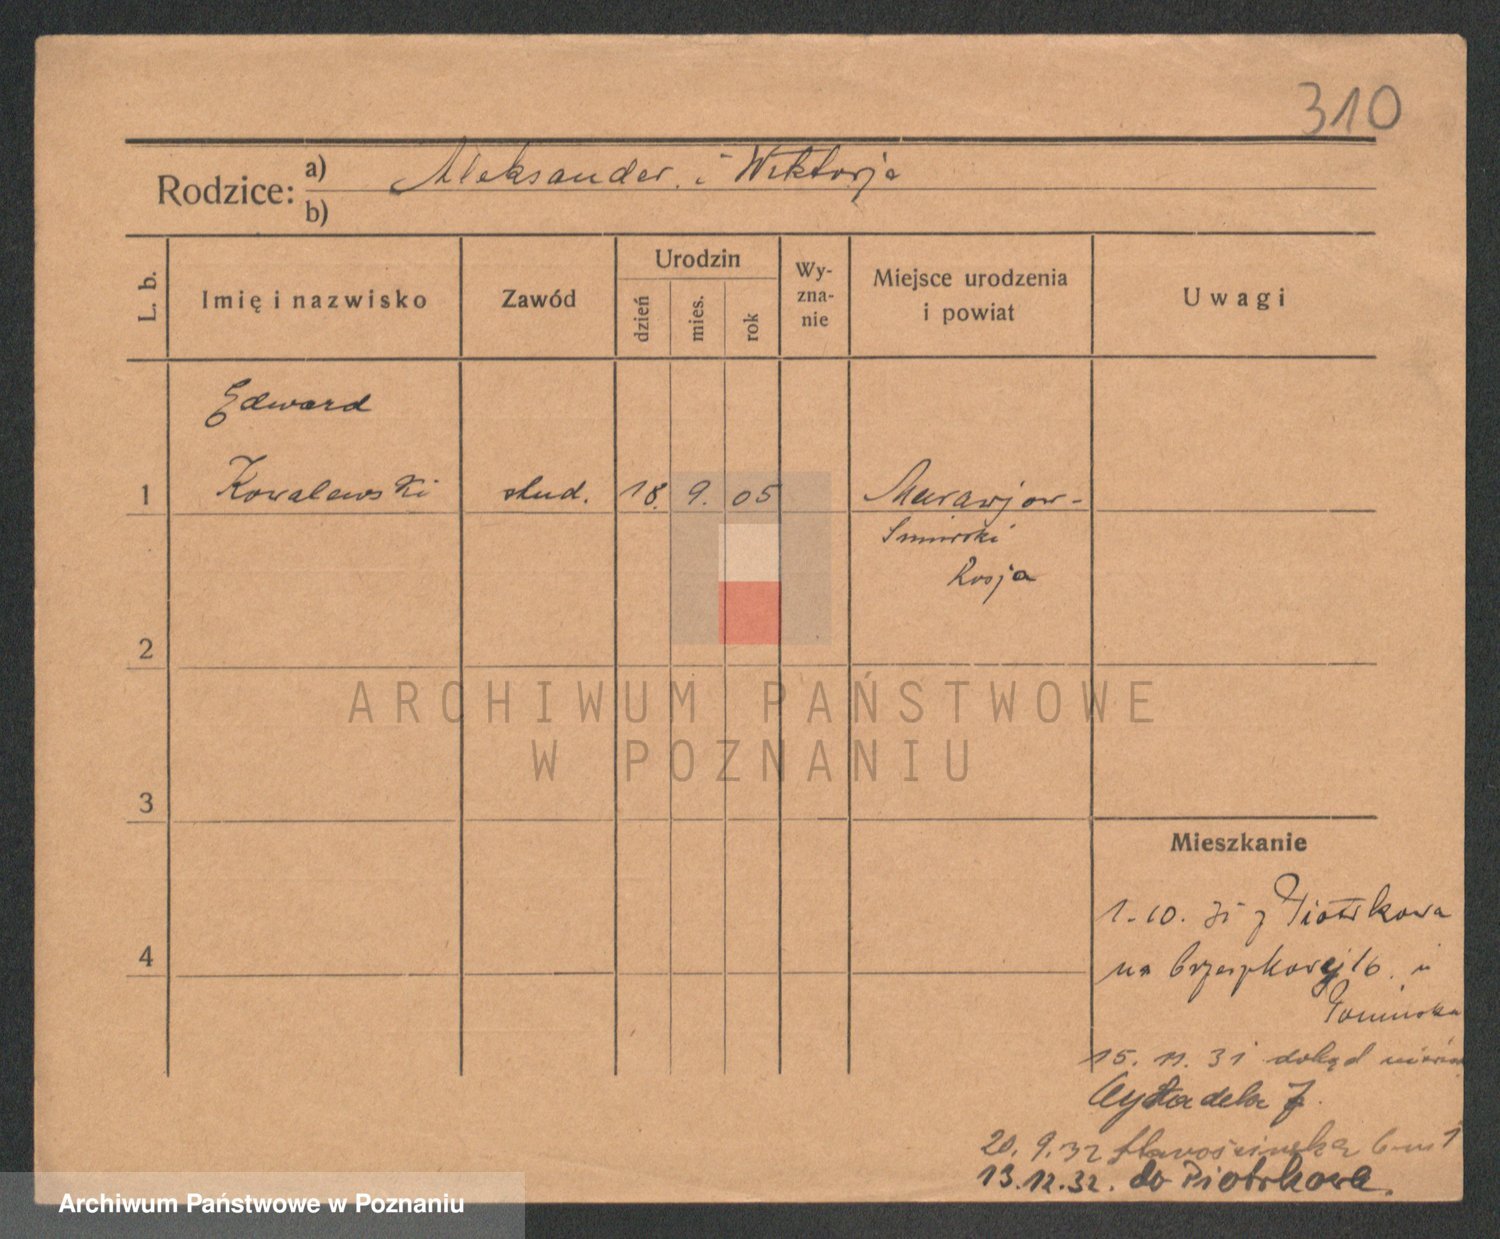 310
Rodzice: a) Aleksander i Wiktorja
b)
L. b.
Imię i nazwisko
Zawód
Urodzin
dzień
mies.
rok
Wy-
zna-
nie
Miejsce urodzenia
i powiat
Uwagi
Edward
1 Kowalewski stud. 18. 9. 05 Murawjow-
Rosja
2
3
4
ARCHIWUM PAŃSTWOWE
W POZNANIU
Mieszkanie
1.10.31 z Piotrkowa
na 16
15.11.31 dokąd
Cytadela
20.9.32
13.12.32. do Piotrkowa.
Archiwum Państwowe w Poznaniu